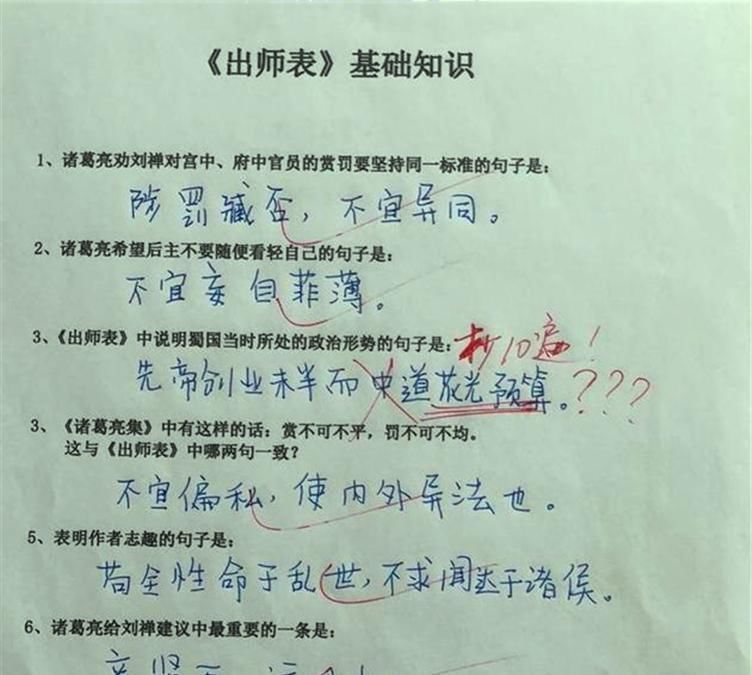 《出师表》基础知识
1、诸葛亮劝刘禅对宫中、府中官员的赏罚要坚持同一标准的句子是：
陟罚臧否，不宜异同。
2、诸葛亮希望后主不要随便看轻自己的句子是：
不宜妄自菲薄。
3、《出师表》中说明蜀国当时所处的政治形势的句子是：
抄10遍！
先帝创业未半而中道花光预算。???
3、《诸葛亮集》中有这样的话：赏不可不平，罚不可不均。
这与《出师表》中哪两句一致？
不宜偏私，使内外异法也。
5、表明作者志趣的句子是：
苟全性命于乱世，不求闻达于诸侯。
6、诸葛亮给刘禅建议中最重要的一条是：